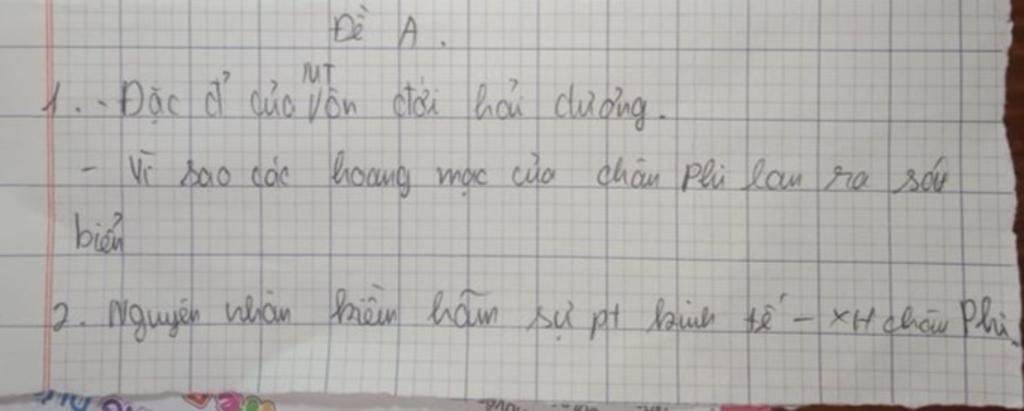 Đề A.
1. - Đặc đ² của MT ôn đới hải dương.
- Vì sao các hoang mạc của châu Phi lan ra sát
biển
2. Nguyên nhân kiềm hãm sự pt kinh tế - XH châu Phi.